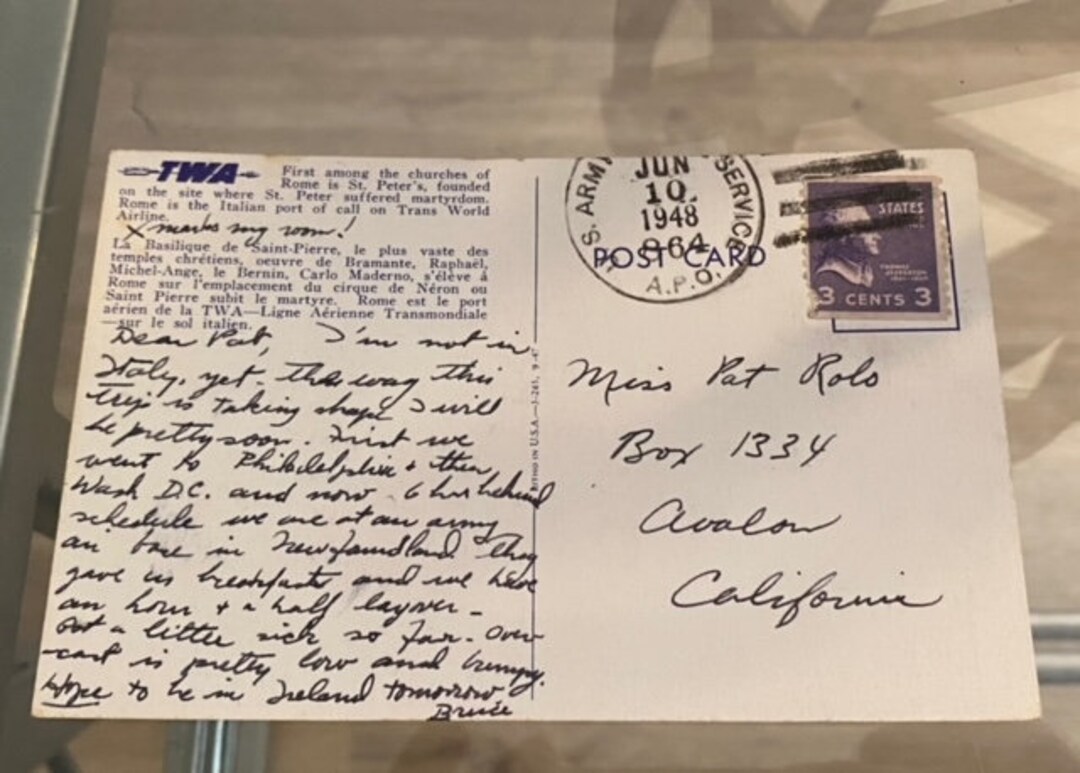 TWA
First among the churches of
Rome is St. Peter's, founded
on the site where St. Peter suffered martyrdom.
Rome is the Italian port of call on Trans World
Airline.
X marks my room!
La Basilique de Saint-Pierre, le plus vaste des
temples chrétiens, oeuvre de Bramante, Raphaël,
Michel-Ange, le Bernin, Carlo Maderno, s'élève à
Rome sur l'emplacement du cirque de Néron ou
Saint Pierre subit le martyre. Rome est le port
aérien de la TWA—Ligne Aérienne Transmondiale
—sur le sol italien.
Dear Pat, I'm not in
Italy, yet - the way this
trip is taking shape I will
be pretty soon. First we
went to Philidelphia + then
Wash D.C. and now 6 hrs behind
schedule we are at an army
air base in Newfoundland they
gave us breakfasts and we have
an hour + a half layover -
a little sick so far - over-
cast is pretty low and bumpy.
Hope to be in Ireland tomorrow
Bruce
IN U.S.A.
S. ARMY SERVICE
JUN
10
1948
864
A.P.O.
POST CARD
STATES
3 CENTS 3
Miss Pat Rolo
Box 1334
Avalon
California